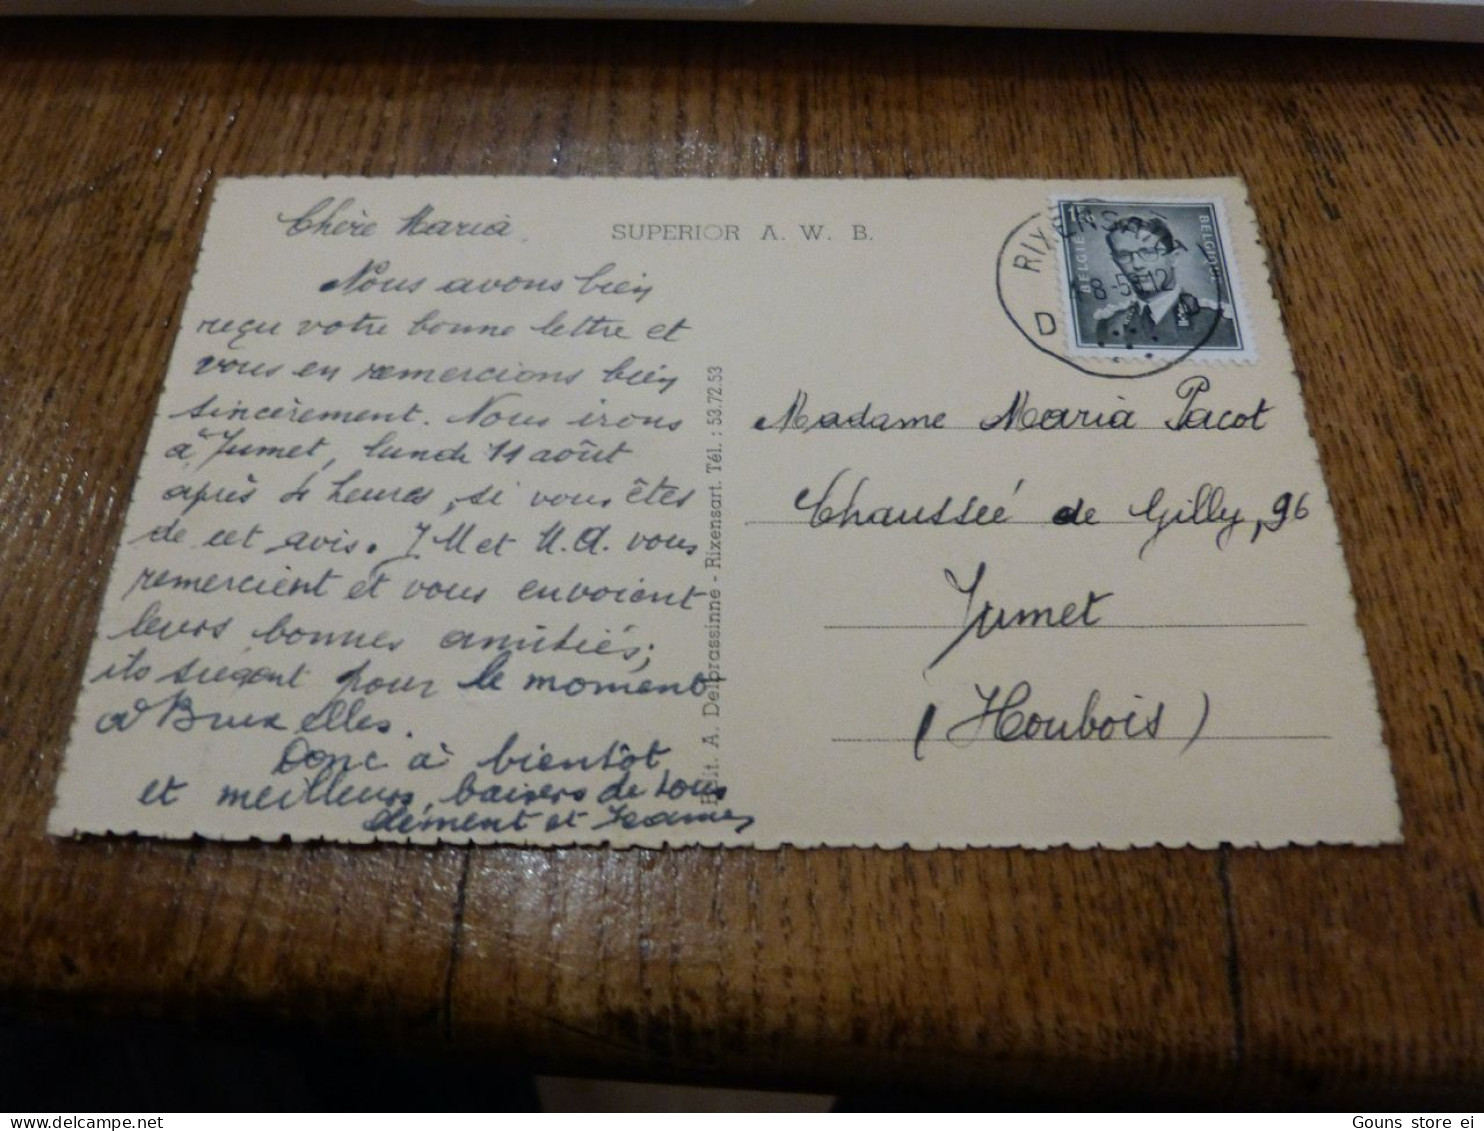 Chère Maria
SUPERIOR A. W. B.
Nous avons bien
reçu votre bonne lettre et
vous en remercions bien
sincèrement. Nous irons
à Jumet, lundi 11 août
après 4 heures, si vous êtes
de cet avis. J M et M.A. vous
remercient et vous envoient
leurs bonnes amitiés;
ils pour le moment
à Bruxelles.
Donc à bientôt
et meilleurs baisers de tous
Clément et
Edit. A. Delbrassinne - Rixensart. Tél. : 53.72.53
RIXENSART
8-58 12
D D
BELGIE BELGIQUE
Madame Maria Pacot
Chaussée de Gilly, 96
Jumet
(Houbois)
Gouns store ei